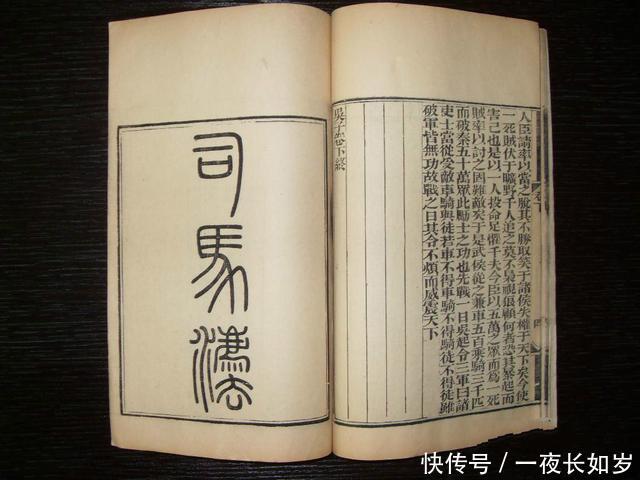 卷下
四
人臣請率以當之脫其不勝取笑于諸侯失權于天下矣今使
一死賊伏于曠野千人追之莫不梟視狼顧何者恐其暴起而
害己也是以一人投命足懼千夫今臣以五萬之眾而為一死
賊率以討之固難敵矣于是武侯從之兼車五百乘騎三千匹
而破秦五十萬眾此勵士之功也先戰一日吳起令三軍曰諸
吏士當從受敵車騎與徒若車不得車騎不得騎徒不得徒雖
破軍皆無功故戰之日其令不煩而威震天下
吳子卷下終
司馬灋
快传号/一夜长如岁